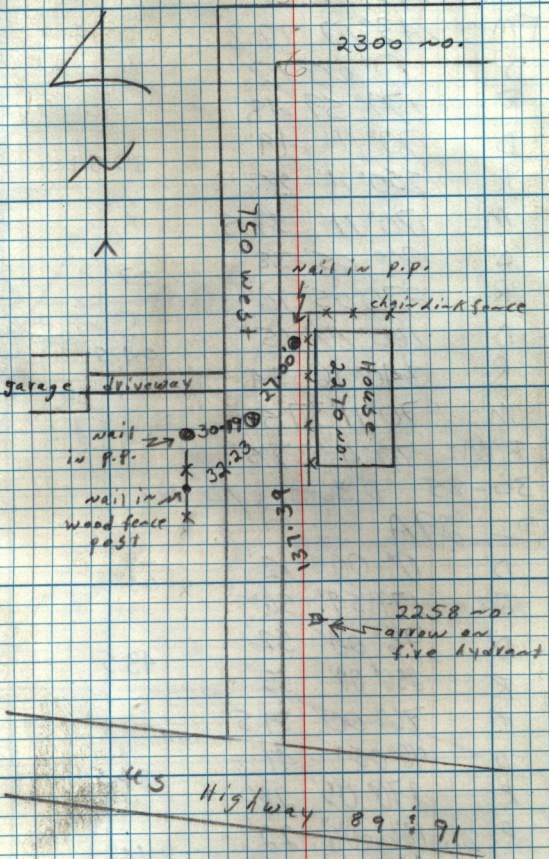 2300 no.
N
750 west
nail in p.p.
chain link fence
27.00'
House
2270 no.
garage
driveway
nail
in p.p.
30.49
32.23
nail in
wood fence
post
137.39
2258 no.
arrow on
fire hydrant
US Highway 89 & 91